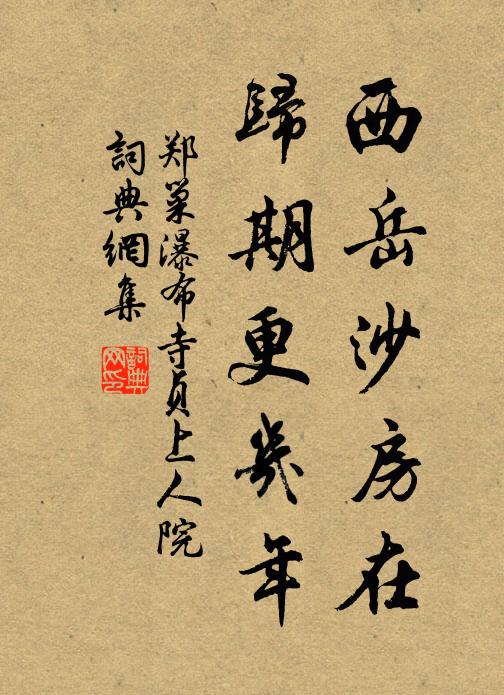 西岳沙房在
歸期更幾年
郑巢瀑布寺貞上人院
詞典網集
詞典
网印